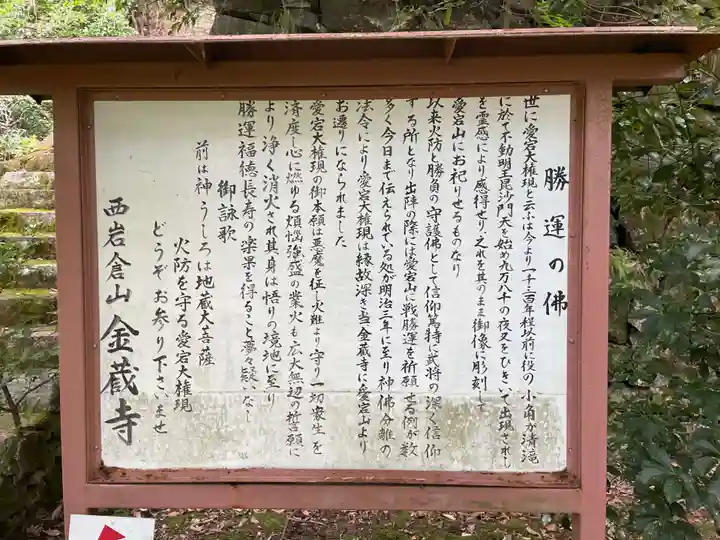 勝運の佛
世に愛宕大権現と云ふは今より一千三百年程以前に役の小角が清滝
に於て不動明王毘沙門天を始め九万八千の夜叉をひきいて出現されし
を霊感により感得せり之れを其のまま御像に彫刻して
愛宕山にお祀りせるものなり
以来火防と勝負の守護佛として信仰篤特に武将の深く信仰
する所となり出陣の際には愛宕山に戦勝運を祈願せる例が数
多く今日まで伝えられている処が明治三年に至り神佛分離の
法令により愛宕大権現は縁故深き当金蔵寺に愛宕山より
お遷りになられました
愛宕大権現の御本願は悪魔を征し火難より守り一切衆生を
済度し心に燃ゆる煩悩強盛の業火も広大無辺の誓願に
より浄く消火され其身は悟りの境地に至り
勝運福徳長寿の楽果を得ること夢々疑いなし
御詠歌
前は神うしろは地蔵大菩薩
火防を守る愛宕大権現
どうぞお参り下さいませ
西岩倉山金蔵寺